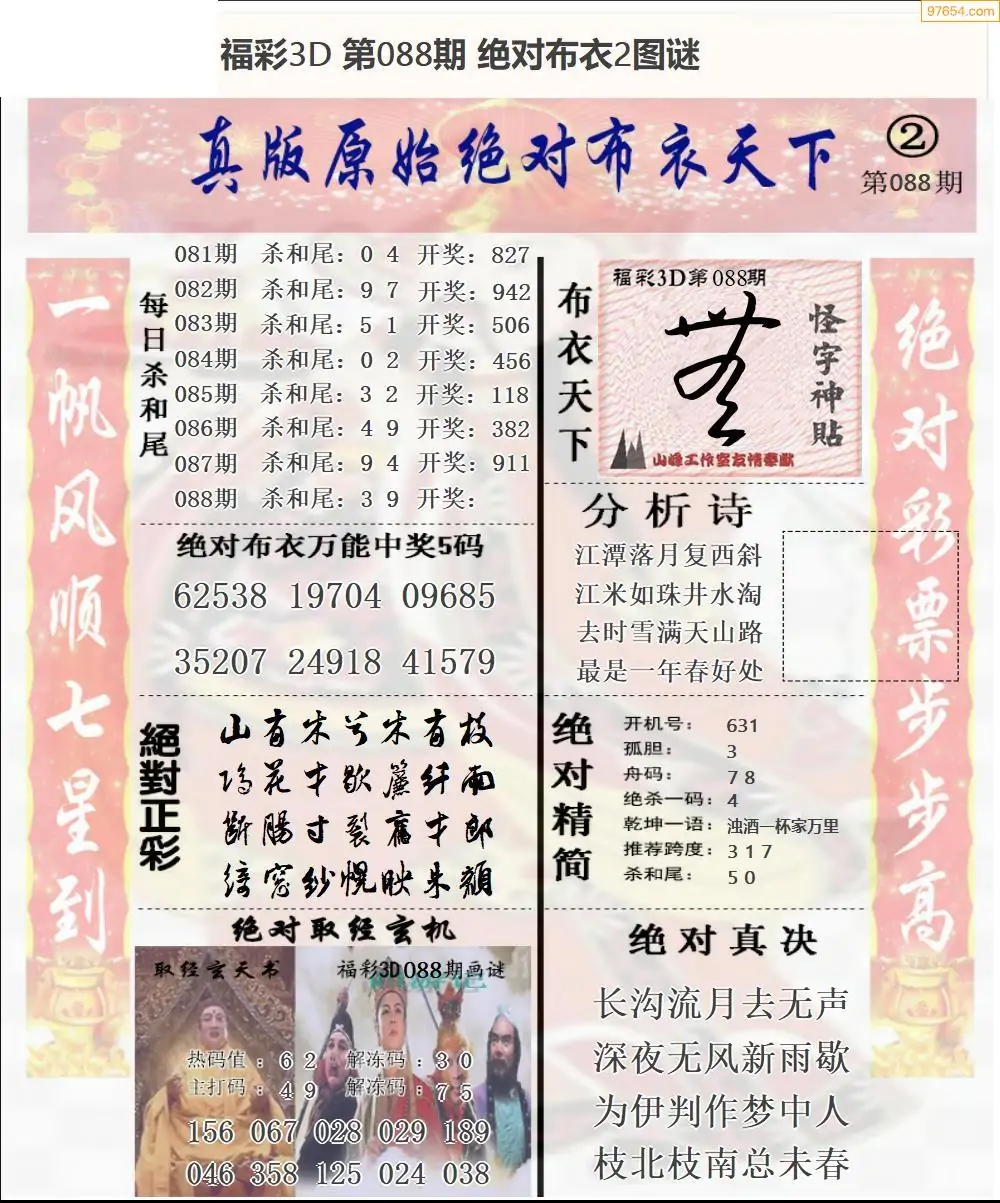 97654.com
福彩3D 第088期 绝对布衣2图谜
真版原始绝对布衣天下
②
第088期
一帆风顺七星到
每日杀和尾
081期 杀和尾：0 4 开奖：827
082期 杀和尾：9 7 开奖：942
083期 杀和尾：5 1 开奖：506
084期 杀和尾：0 2 开奖：456
085期 杀和尾：3 2 开奖：118
086期 杀和尾：4 9 开奖：382
087期 杀和尾：9 4 开奖：911
088期 杀和尾：3 9 开奖：
绝对布衣万能中奖5码
62538 19704 09685
35207 24918 41579
絕對正彩
山有木兮木有枝
花才歇簾纤雨
断腸寸裂舊才郎
綺窓纱幌映朱顏
绝对取经玄机
取经玄天书
福彩3D088期画谜
热码值：6 2 解冻码：3 0
主打码：4 9 解冻码：7 5
156 067 028 029 189
046 358 125 024 038
布衣天下
福彩3D第088期
怪字神貼
山峰工作室友情奉献
分析诗
江潭落月复西斜
江米如珠井水淘
去时雪满天山路
最是一年春好处
绝对精简
开机号：631
孤胆：3
舟码：7 8
绝杀一码：4
乾坤一语：浊酒一杯家万里
推荐跨度：3 1 7
杀和尾：5 0
绝对真决
长沟流月去无声
深夜无风新雨歇
为伊判作梦中人
枝北枝南总未春
绝对彩票步步高